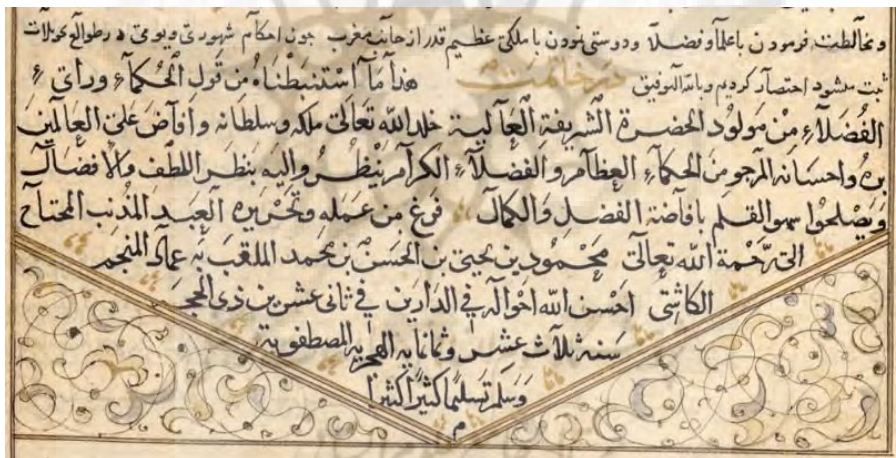 ومخالطت فرمودن با علما و فضلا و دوستی نمودن با ملکی عظیم قدر از جانب مغرب چون احکام شهوری و یومی در طوالع تحویلات
ثبت میشود اختصار کردیم وبالله التوفیق در خاتمت هذا ما استنبطناه من قول الحکمآء ورأی
الفضلآء من مولود الحضرة الشریفة العالیة خلد الله تعالی ملکه وسلطانه وافاض علی العالمین
بره واحسانه المرجو من الحکمآء العظام والفضلآء الکرام ینظر والیه بنظر اللطف والافضال
ویصلحوا سهو القلم بافاضة الفضل والکمال فرغ من عمله وتحریره العبد المذنب المحتاج
الی رحمة الله تعالی محمود بن یحیی بن الحسن بن محمد الملقب به عماد المنجم
الکاشی احسن الله احواله فی الدارین فی ثانی عشرین ذی الحجة
سنه ثلاث عشر وثمانمایه الهجریه المصطفویة
وسلم تسلیما کثیرا کثیرا
م